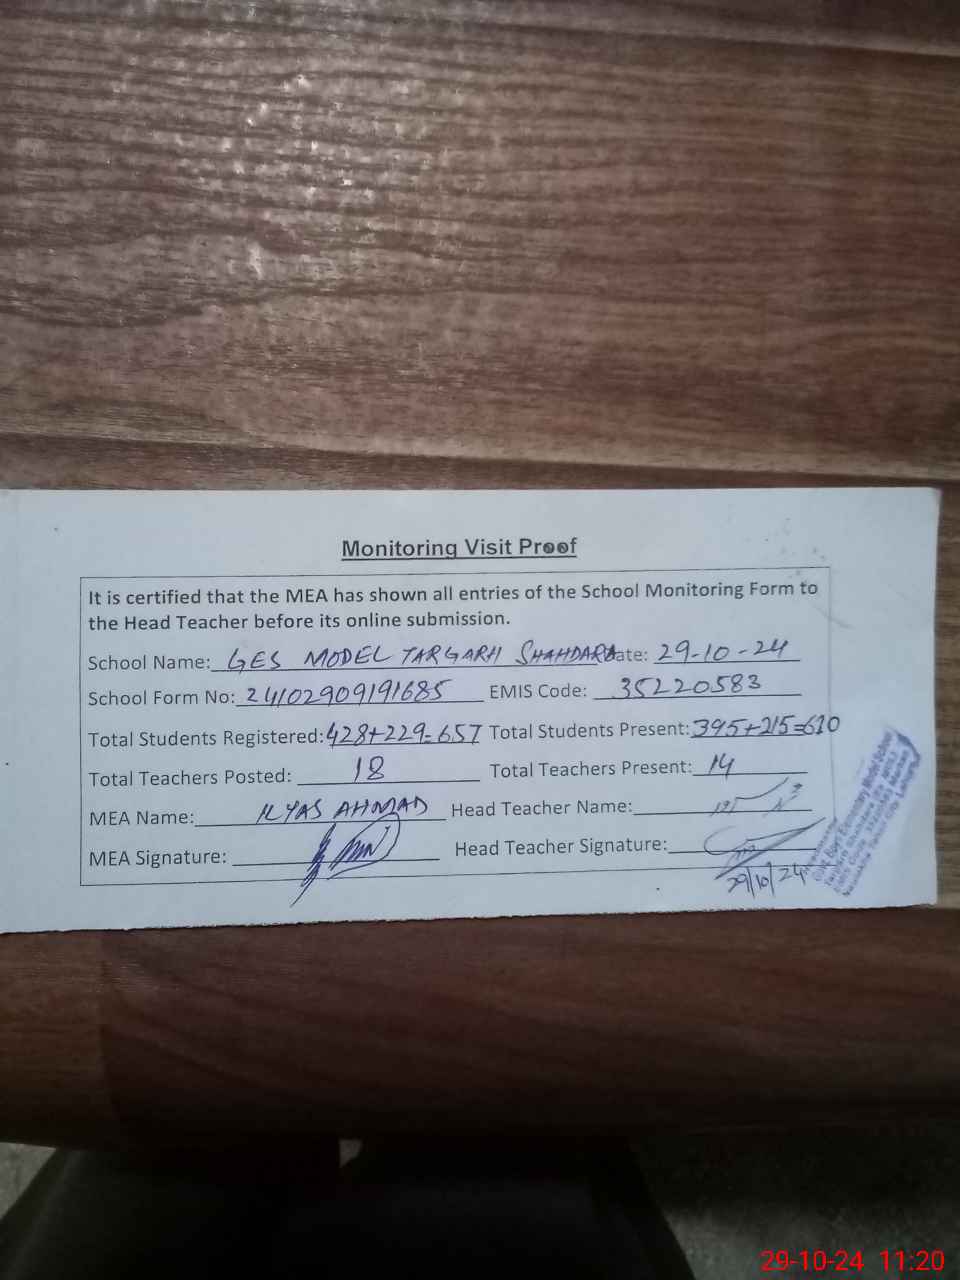 Monitoring Visit Proof
It is certified that the MEA has shown all entries of the School Monitoring Form to
the Head Teacher before its online submission.
School Name: GES MODEL TARGARH SHAHDARA Date: 29-10-24
School Form No: 24102909191685 EMIS Code: 35220583
Total Students Registered: 428+229=657 Total Students Present: 395+215=610
Total Teachers Posted: 18 Total Teachers Present: 14
MEA Name: ILYAS AHMAD Head Teacher Name:
MEA Signature: Head Teacher Signature:
29/10/24
Govt. Boys Elementary Model School
29-10-24 11:20